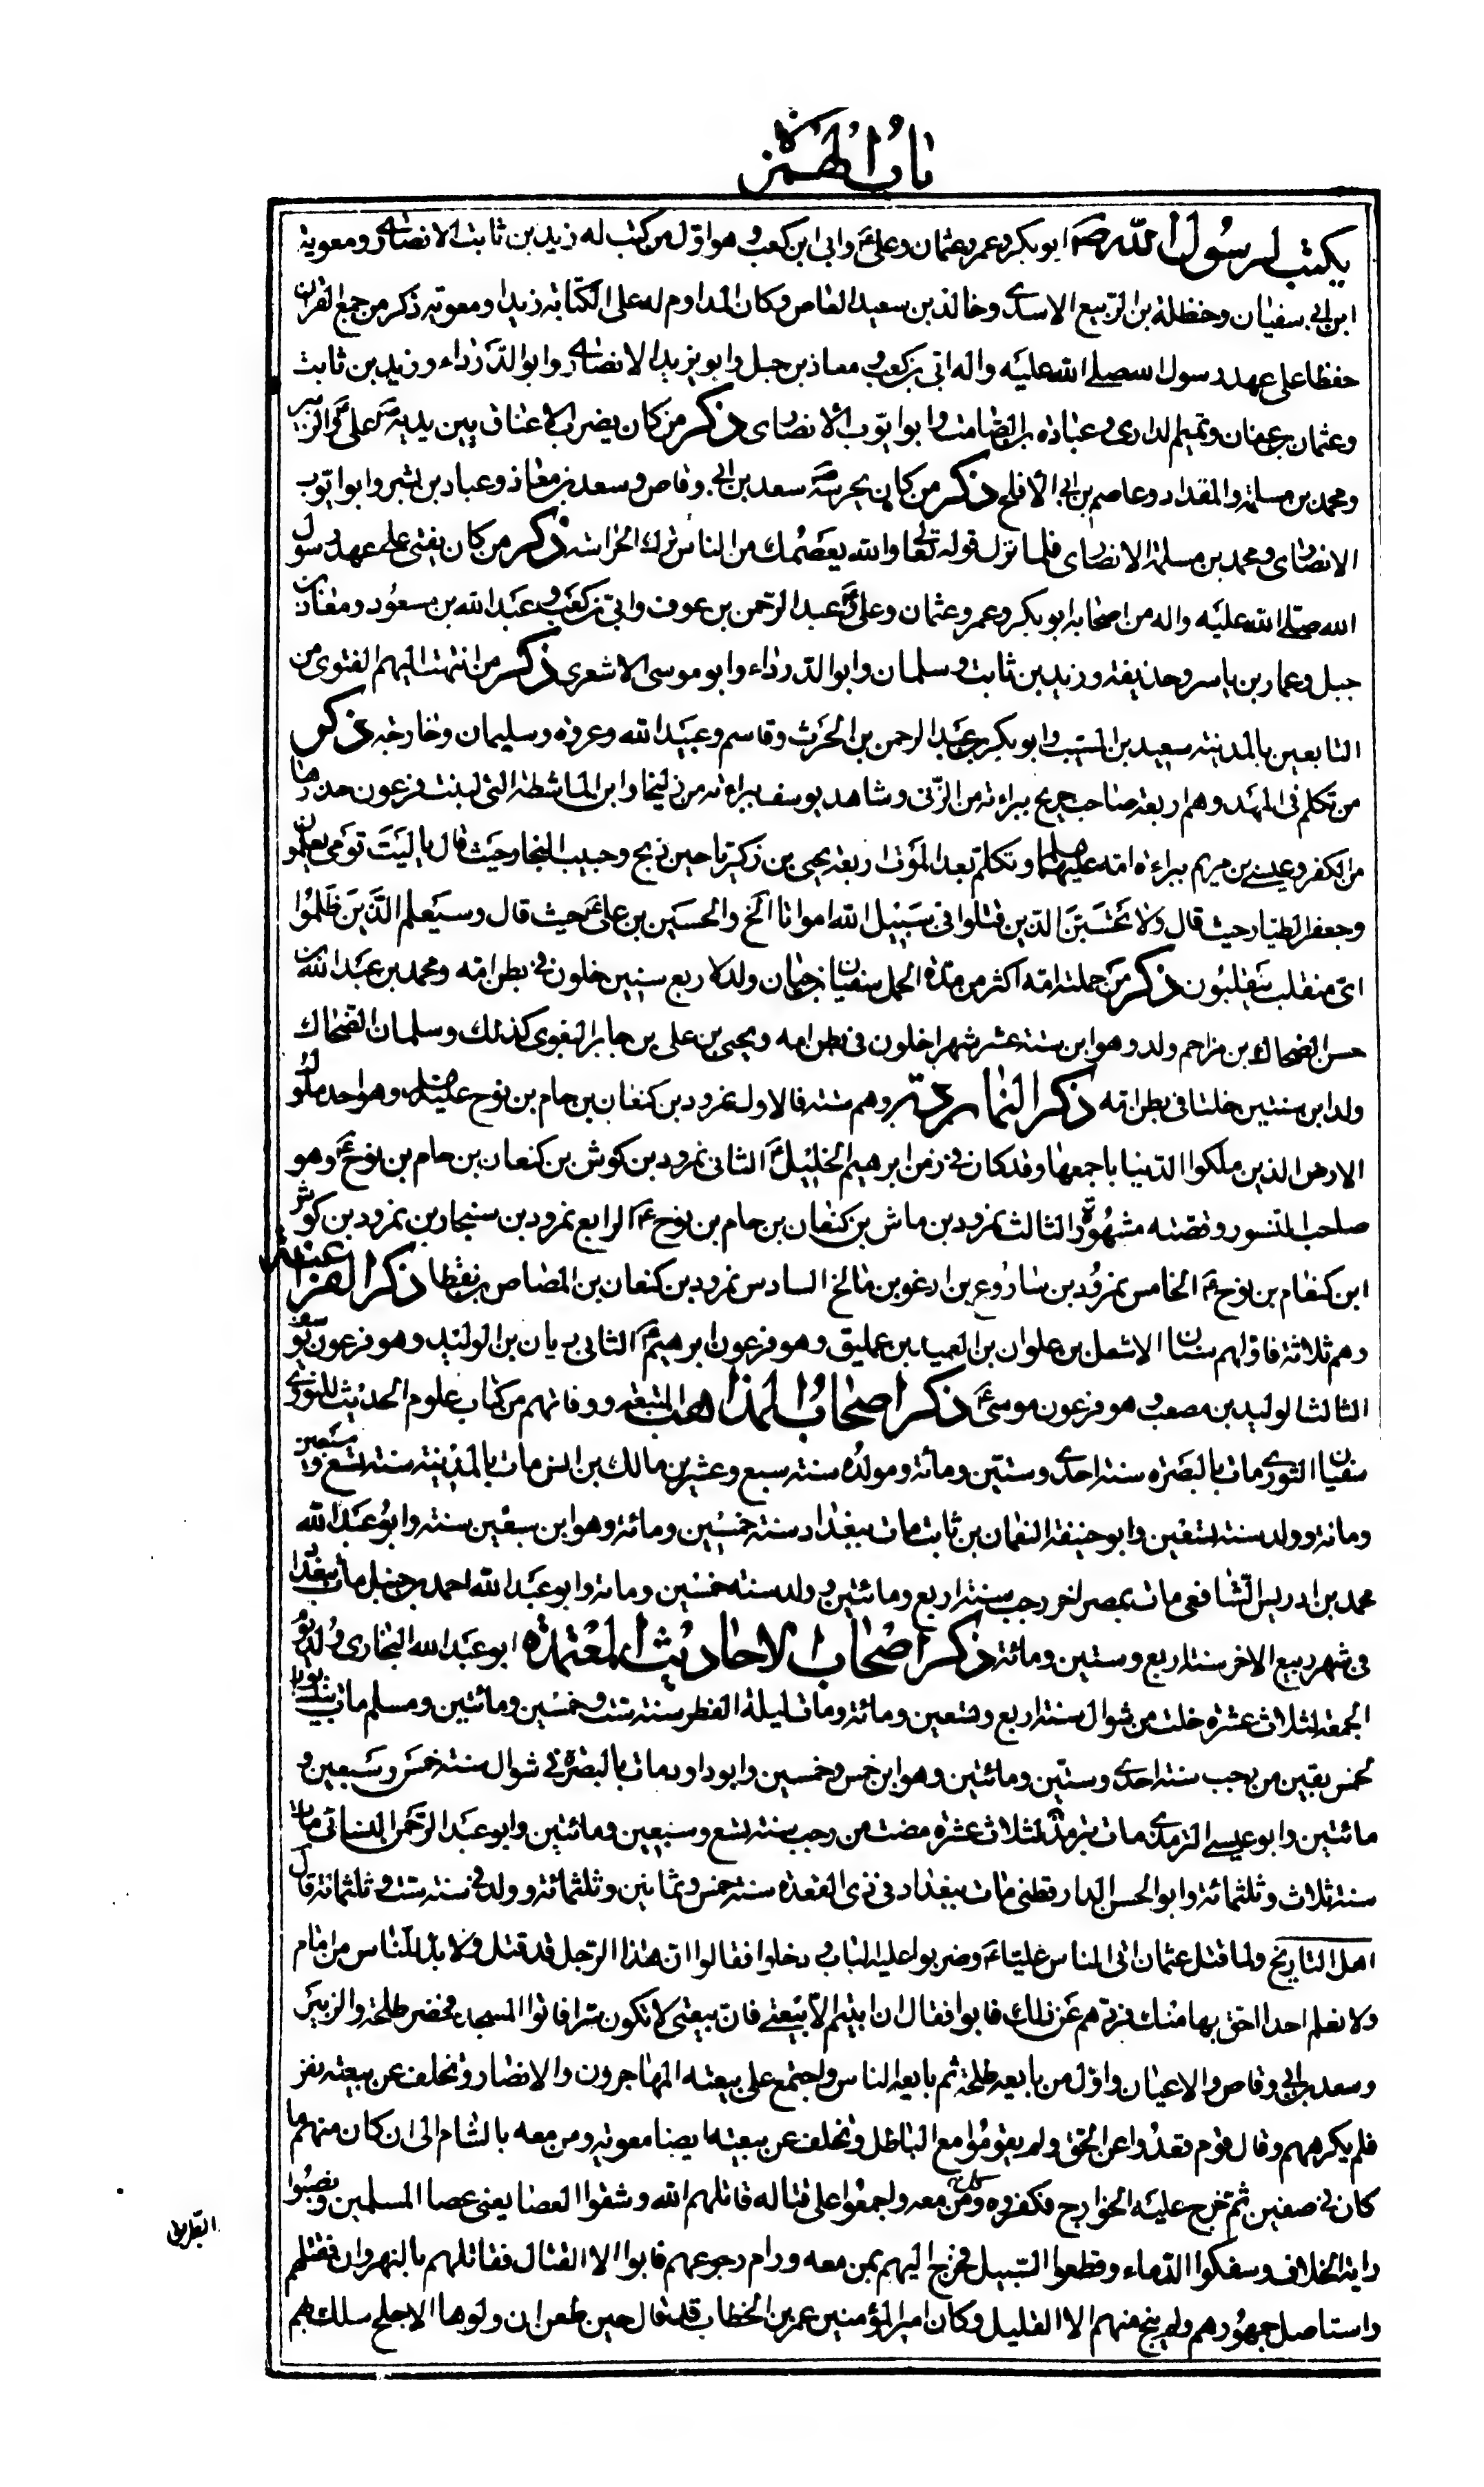 باب الهمزة
يكتب لرسول الله ص ابو بكر وعمر وعثمان وعلى ع وابى ابن كعب وهو اول من كتب له زيد بن ثابت الانصارى ومعوية
ابن ابى سفيان وحنظلة بن الربيع الاسدى وخالد بن سعيد العاص وكان المداوم له على الكتابة زيدا ومعوية ذكر من جمع القران
حفظا على عهد رسول الله صلى الله عليه واله ابى بن كعب ومعاذ بن جبل وابو يزيد الانصارى وابو الدرداء وزيد بن ثابت
وعثمان بن عفان وتميم الدارى وعبادة بن الصامت وابو ايوب الانصارى ذكر من كان يضرب الاعناق بين يديه ص على ع والزبير
ومحمد بن مسلمة والمقداد وعاصم بن ابى الافلح ذكر من كان يحرسه ص سعد بن ابى وقاص وسعد بن معاذ وعباد بن بشر وابو ايوب
الانصارى ومحمد بن مسلمة الانصارى فلما نزل قوله تعالى والله يعصمك من الناس ترك الحراسة ذكر من كان يفتى على عهد رسول
الله صلى الله عليه واله من اصحابه ابو بكر وعمر وعثمان وعلى ع وعبد الرحمن بن عوف وابى بن كعب وعبد الله بن مسعود ومعاذ بن
جبل وعمار بن ياسر وحذيفة وزيد بن ثابت وسلمان وابو الدرداء وابو موسى الاشعرى ذكر من انتهت اليهم الفتوى من
التابعين بالمدينة سعيد بن المسيب وابو بكر بن عبد الرحمن بن الحرث وقاسم وعبيد الله وعروة وسليمان وخارجة ذكر
من تكلم فى المهد وهم اربعة صاحب جريح ببراءته من الزنى وشاهد يوسف ببراءته من زليخا وابن الماشطة التى لبنت فرعون حذرها
من الكفر وعيسى بن مريم ببراءة امه عليهما السلام وتكلم بعد الموت اربعة يحيى بن زكريا حين ذبح وحبيب النجار حيث قال يا ليت قومى يعلمون
وجعفر الطيار حيث قال ولا تحسبن الذين قتلوا فى سبيل الله امواتا الخ والحسين بن على ع حيث قال وسيعلم الذين ظلموا
اى منقلب ينقلبون ذكر من حملته امه اكثر من مدة الحمل سفيان بن حيان ولد لاربع سنين خلون فى بطن امه ومحمد بن عبد الله بن
حسن الضحاك بن مزاحم ولد وهو ابن ستة عشر شهرا خلون فى بطن امه ويحيى بن على بن جابر البغوى كذلك وسلمان الضحاك
ولد ابن سنتين خلتا فى بطن امه ذكر النماردة وهم ستة فالاول نمرود بن كنعان بن حام بن نوح عليه السلام وهو احد ملوك
الارض الذين ملكوا الدنيا باجمعها وقد كان فى زمن ابرهيم الخليل ع الثانى نمرود بن كوش بن كنعان بن حام بن نوح ع وهو
صاحب النسور وقصته مشهورة والثالث نمرود بن ماش بن كنعان بن حام بن نوح ع الرابع نمرود بن سنجار بن نمرود بن كوش
ابن كنعام بن نوح ع الخامس نمرود بن ساروع بن ارغو بن مالخ السادس نمرود بن كنعان بن المصاص بن نقطا ذكر الفراعنة
وهم ثلاثة فاولهم سنان الاشعل بن علوان بن العميد بن عمليق وهو فرعون ابرهيم ع الثانى ريان بن الوليد وهو فرعون يوسف
الثالث الوليد بن مصعب وهو فرعون موسى ع ذكر اصحاب المذاهب المتبعة ووفاتهم من كتاب علوم الحديث للنورى
سفيان الثورى مات بالبصرة سنة احدى وستين ومائة ومولده سنة سبع وعشرين مالك بن انس مات بالمدينة سنة تسع وسبعين
ومائة وولد سنة تسعين وابو حنيفة النعمان بن ثابت مات ببغداد سنة خمسين ومائة وهو ابن سبعين سنة وابو عبد الله
محمد بن ادريس الشافعى مات بمصر اخر رجب سنة اربع ومائتين وولد سنة خمسين ومائة وابو عبد الله احمد بن حنبل مات ببغداد
فى شهر ربيع الاخر سنة اربع وستين ومائة ذكر اصحاب الاحاديث المعتمدة ابو عبد الله البخارى ولد يوم
الجمعة لثلاث عشرة خلت من شوال سنة اربع وتسعين ومائة ومات ليلة الفطر سنة ست وخمسين ومائتين ومسلم مات بنيشابور
لخمس بقين من رجب سنة احدى وستين ومائتين وهو ابن خمس وخمسين وابو داود مات بالبصرة فى شوال سنة خمس وسبعين و
مائتين وابو عيسى الترمذى مات بترمذ لثلاث عشرة مضت من رجب سنة تسع وسبعين ومائتين وابو عبد الرحمن النسائى مات
سنة ثلاث وثلثمائة وابو الحسن الدارقطنى مات ببغداد فى ذى القعدة سنة خمس وثمانين وثلثمائة وولد فى سنة ست وثلثمائة قال
اهل التاريخ ولما قتل عثمان اتى الناس عليا ع وضربوا عليه الباب ودخلوا فقالوا ان هذا الرجل قد قتل ولا بد للناس من امام
ولا نعلم احدا احق بها منك فردهم عن ذلك فابوا فقال ان ابيتم الا بيعتى فان بيعتى لا تكون سرا فاتوا المسجد فحضر طلحة والزبير
وسعد بن ابى وقاص والاعيان واول من بايعه طلحة ثم بايعه الناس واجتمع على بيعته المهاجرون والانصار وتخلف عن بيعته نفر
فلم يكرههم وقال قوم قعدوا عن الحق ولم يقوموا مع الباطل وتخلف عن بيعته ايضا معوية ومن معه بالشام الى ان كان منهم ما
كان فى صفين ثم خرج عليه الخوارج فكفروه وكل من معه واجمعوا على قتاله قاتلهم الله وشقوا العصا يعنى عصا المسلمين ونصبوا
راية الخلاف وسفكوا الدماء وقطعوا السبيل فخرج اليهم بمن معه ورام رجوعهم فابوا الا القتال فقاتلهم بالنهروان فقتلهم
واستاصل جمهورهم ولم ينج منهم الا القليل وكان امير المؤمنين عمر بن الخطاب قد قال حين طعن ان ولوها الاجلح سلك بهم
الطريق